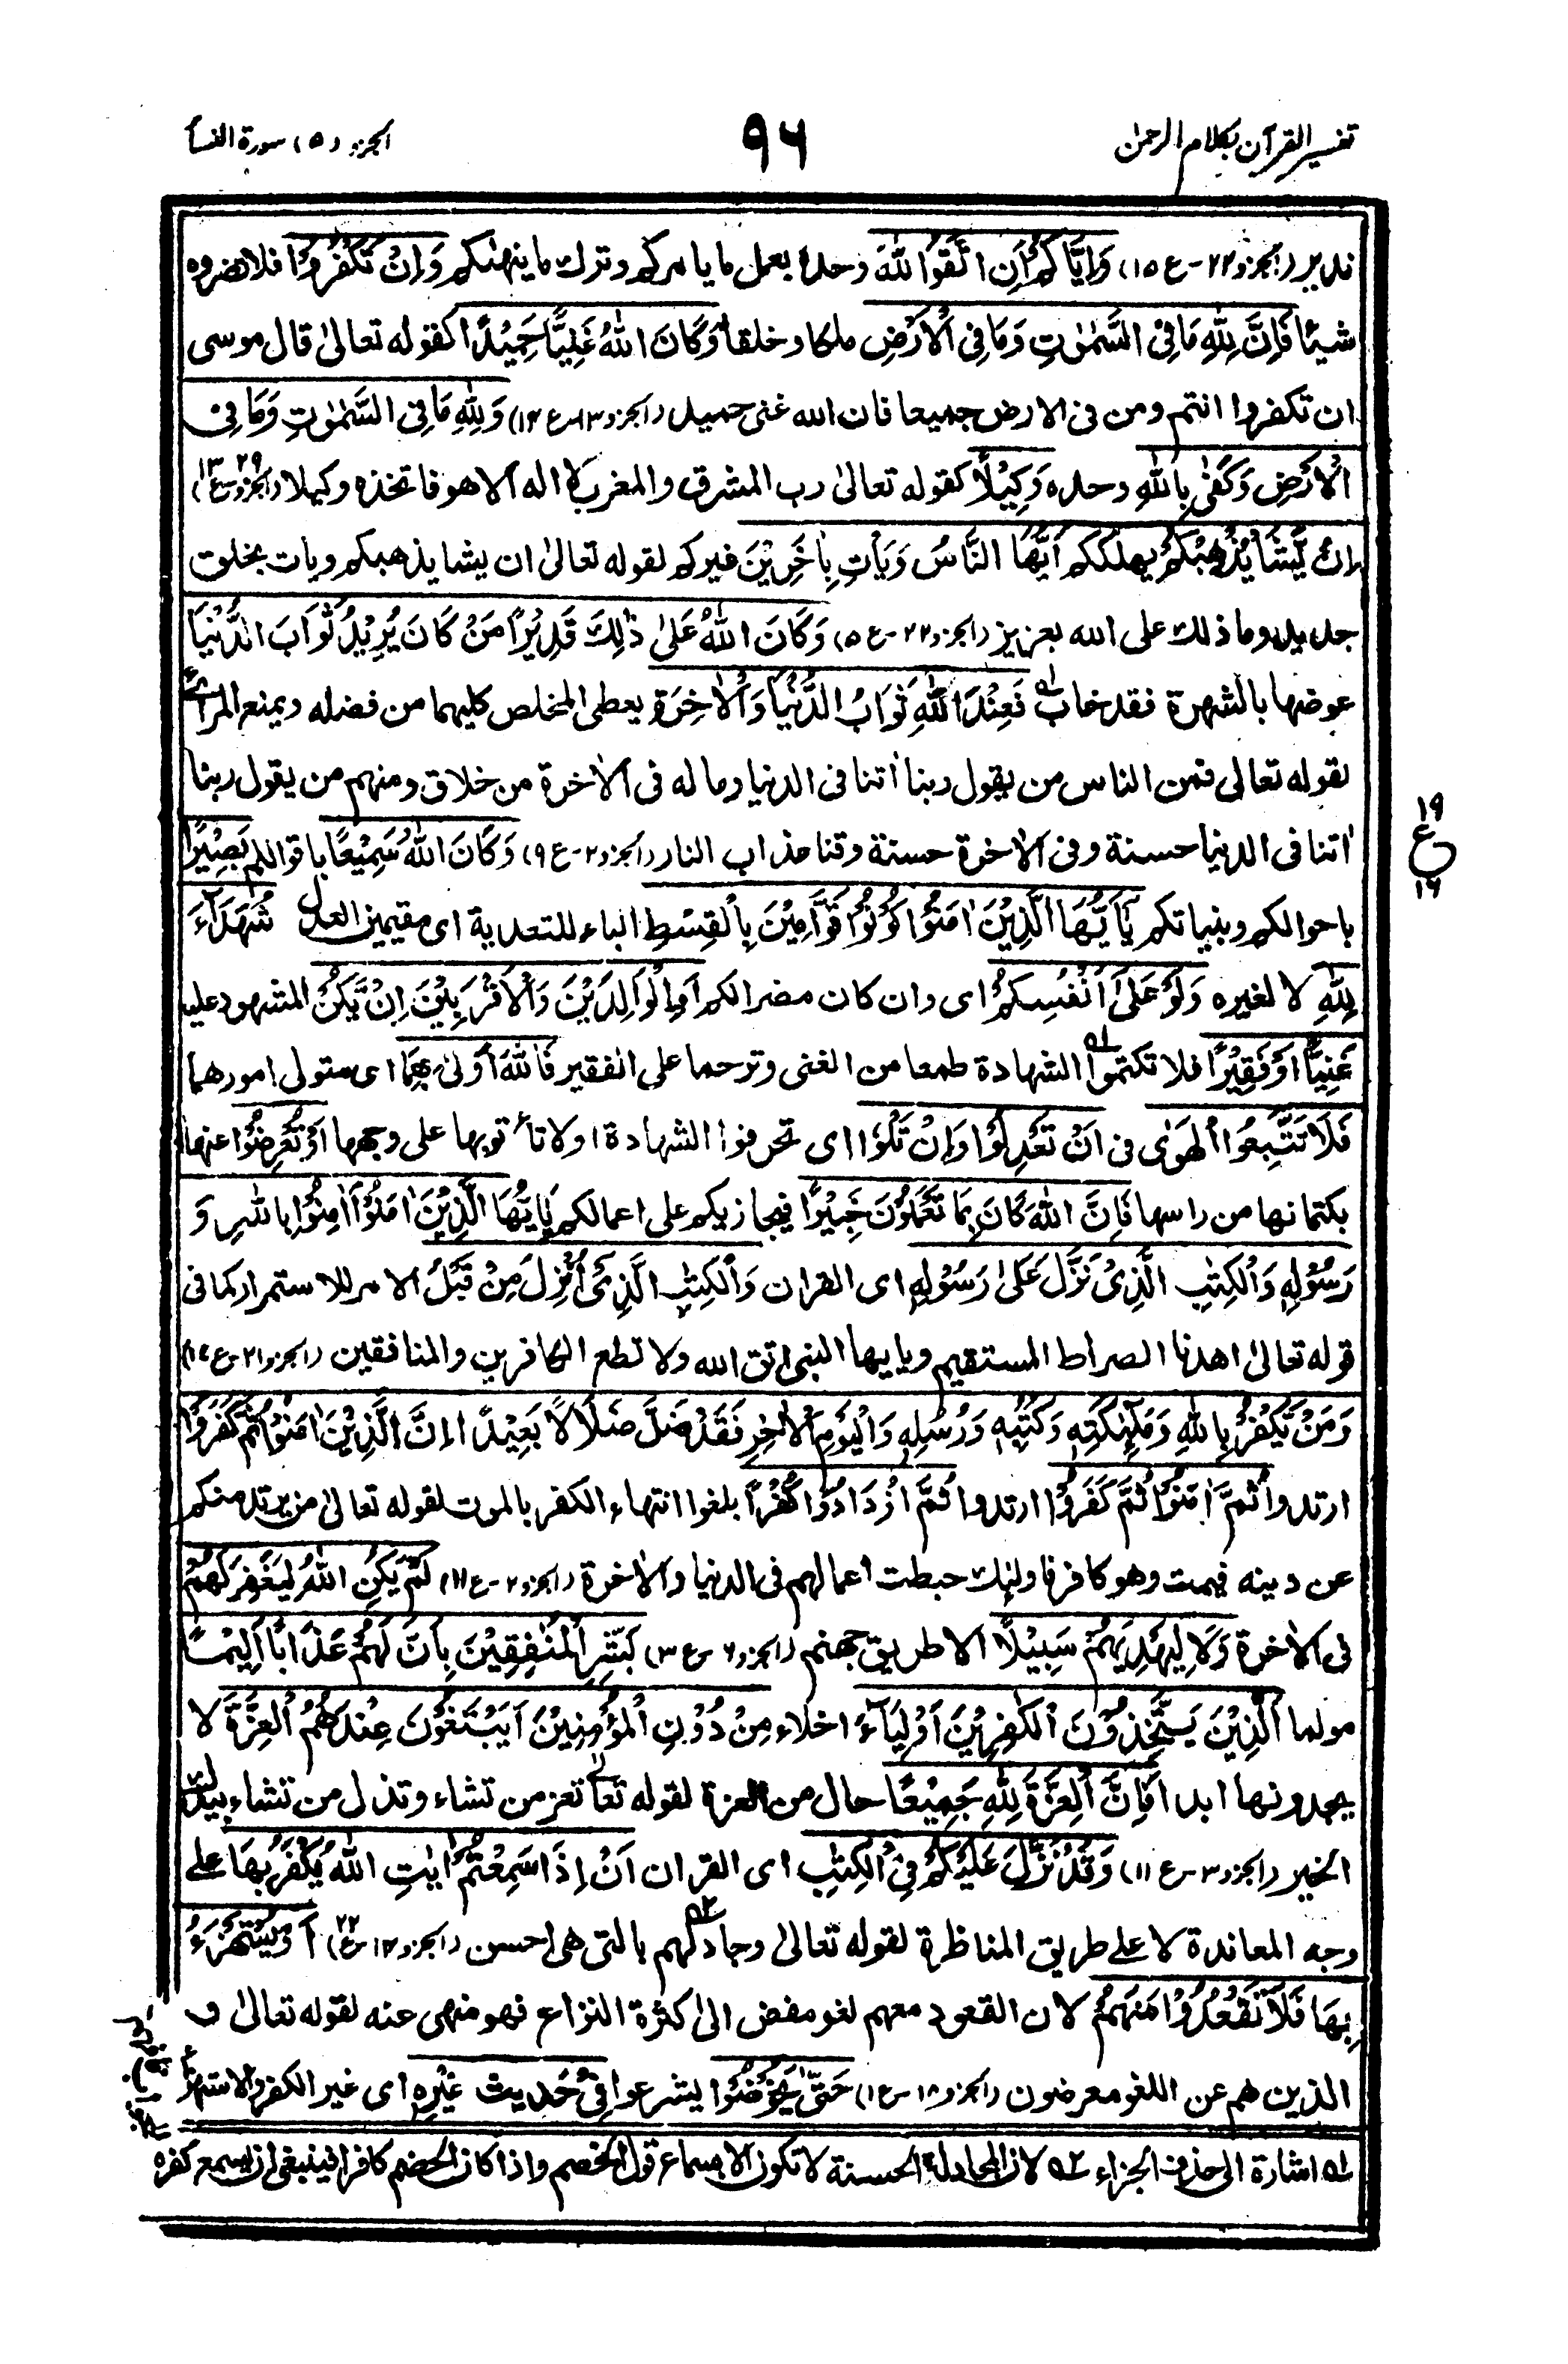 تفسير القرآن بكلام الرحمن
٩٦
الجزء (٥) سورة النسآ
نذير (الجزو ٢٢-ع ١٥) وَاِيَّاكُمْ اَنِ اتَّقُوا اللّٰهَ وحدهٗ بعمل ما يامركم وترك ما ينهٰكم وَاِنْ تَكْفُرُوْا فلا تضروه
شيئا فَاِنَّ لِلّٰهِ مَا فِى السَّمٰوٰتِ وَمَا فِى الْاَرْضِ ملكا وخلقا وَكَانَ اللّٰهُ غَنِيًّا حَمِيْدًا كقوله تعالىٰ قال موسى
ان تكفروا انتم ومن فى الارض جميعا فان الله غنى حميد (الجزو ١٣-ع ١٤) وَلِلّٰهِ مَا فِى السَّمٰوٰتِ وَمَا فِى
الْاَرْضِ وَكَفٰى بِاللّٰهِ وحده وَكِيْلًا كقوله تعالىٰ رب المشرق والمغرب لا اله الا هو فاتخذه وكيلا (الجزو ٢٩ ع ١٣)
اِنْ يَّشَاْ يُذْهِبْكُمْ يهلككم اَيُّهَا النَّاسُ وَيَاْتِ بِاٰخَرِيْنَ غيركم لقوله تعالىٰ ان يشا يذهبكم ويات بخلق
جديد وما ذلك على الله بعزيز (الجزو ٢٢-ع ٥) وَكَانَ اللّٰهُ عَلىٰ ذٰلِكَ قَدِيْرًا مَنْ كَانَ يُرِيْدُ ثَوَابَ الدُّنْيَا
عوضها بالشهرة فقد خاب ؂١ فَعِنْدَ اللّٰهِ ثَوَابُ الدُّنْيَا وَالْاٰخِرَةِ يعطى المخلص كليهما من فضله ويمنع المرائى
لقوله تعالى فمن الناس من يقول ربنا اٰتنا فى الدنيا وما له فى الاٰخرة من خلاق ومنهم من يقول ربنا
اٰتنا فى الدنيا حسنة وفى الاٰخرة حسنة وقنا عذاب النار (الجزو ٢-ع ٩) وَكَانَ اللّٰهُ سَمِيْعًا باقوالكم بَصِيْرًا
١٩
ع
١٦
باحوالكم وبنياتكم يٰٓاَيُّهَا الَّذِيْنَ اٰمَنُوْا كُوْنُوْا قَوَّامِيْنَ بِالْقِسْطِ الباء للتعدية اى مقيمين العدل شُهَدَآءَ
لِلّٰهِ لا لغيره وَلَوْ عَلٰٓى اَنْفُسِكُمْ اى وان كان مضرا لكم اَوِ الْوَالِدَيْنِ وَالْاَقْرَبِيْنَ اِنْ يَّكُنْ المشهود عليه
غَنِيًّا اَوْ فَقِيْرًا فلا تكتموا ؂١ الشهادة طمعا من الغنى وترحما على الفقير فَاللّٰهُ اَوْلىٰ بِهِمَا اى متولى امورهما
فَلَا تَتَّبِعُوا الْهَوٰى فى اَنْ تَعْدِلُوْا وَاِنْ تَلْوٗا اى تحرفوا الشهادة اولا تأتوبها على وجهها اَوْ تُعْرِضُوْا عنها
بكتمانها من راسها فَاِنَّ اللّٰهَ كَانَ بِمَا تَعْمَلُوْنَ خَبِيْرًا فيجازيكم على اعمالكم يٰٓاَيُّهَا الَّذِيْنَ اٰمَنُوْٓا اٰمِنُوْا بِاللّٰهِ وَ
رَسُوْلِهٖ وَالْكِتٰبِ الَّذِىْ نَزَّلَ عَلىٰ رَسُوْلِهٖ اى القران وَالْكِتٰبِ الَّذِىْٓ اُنْزِلَ مِنْ قَبْلُ الامر للاستمرار كما فى
قوله تعالىٰ اهدنا الصراط المستقيم ويايها النبى اتق الله ولا تطع الكافرين والمنافقين (الجزو ٢١-ع ١٧)
وَمَنْ يَّكْفُرْ بِاللّٰهِ وَمَلٰٓئِكَتِهٖ وَكُتُبِهٖ وَرُسُلِهٖ وَالْيَوْمِ الْاٰخِرِ فَقَدْ ضَلَّ ضَلٰلًا بَعِيْدًا اِنَّ الَّذِيْنَ اٰمَنُوْا ثُمَّ كَفَرُوْا
ارتدوا ثُمَّ اٰمَنُوْا ثُمَّ كَفَرُوْا ارتدوا ثُمَّ ازْدَادُوْا كُفْرًا بلغوا انتهاء الكفر بالموت لقوله تعالىٰ من يرتد منكم
عن دينه فيمت وهو كافر فاولئك حبطت اعمالهم فى الدنيا والاٰخرة (الجزو ٢-ع ١١) لَمْ يَكُنِ اللّٰهُ لِيَغْفِرَ لَهُمْ
فى الاٰخرة وَلَا لِيَهْدِيَهُمْ سَبِيْلًا الا طريق جهنم (الجزو ٦-ع ٣) بَشِّرِ الْمُنٰفِقِيْنَ بِاَنَّ لَهُمْ عَذَابًا اَلِيْمًا
مولما الَّذِيْنَ يَتَّخِذُوْنَ الْكٰفِرِيْنَ اَوْلِيَآءَ اخلاء مِنْ دُوْنِ الْمُؤْمِنِيْنَ اَيَبْتَغُوْنَ عِنْدَهُمُ الْعِزَّةَ لا
يجدونها ابدا فَاِنَّ الْعِزَّةَ لِلّٰهِ جَمِيْعًا حال من العزة لقوله تعالىٰ تعز من تشاء وتذل من تشاء بيدك
الخير (الجزو ٣-ع ١١) وَقَدْ نَزَّلَ عَلَيْكُمْ فِى الْكِتٰبِ اى القران اَنْ اِذَا سَمِعْتُمْ اٰيٰتِ اللّٰهِ يُكْفَرُ بِهَا على
وجه المعاندة لا على طريق المناظرة لقوله تعالىٰ وجادلهم ؂٢ بالتى هى احسن (الجزو ١٤-ع ٢٢) اَوْ يُسْتَهْزَءُ
بِهَا فَلَا تَقْعُدُوْا مَعَهُمْ لان القعود معهم لغو مفض الىٰ كثرة النزاع فهو منهى عنه لقوله تعالىٰ و
الذين هم عن اللغو معرضون (الجزو ١٨-ع ١) حَتّٰى يَخُوْضُوْا يشرعوا فِىْ حَدِيْثٍ غَيْرِهٖ اى غير الكفر والاستهزأ
؂١ اشارة الى حذف الجزاء ؂٢ لان المجادلة الحسنة لا تكون الا بسماع قول الخصم واذا كان الخصم كافرا فينبغى ان يسمع كفره